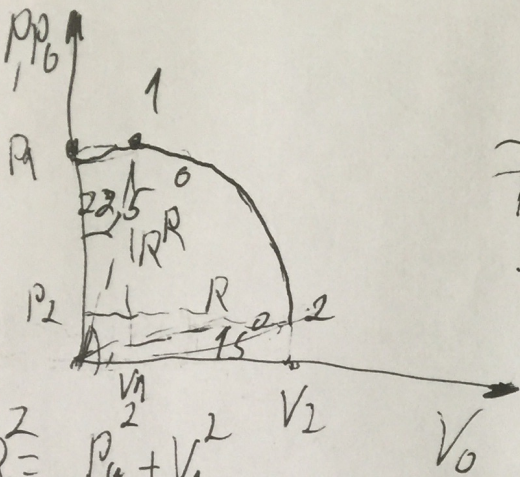 P,P₀
1
P₁
0
22,5
R
R
P₂
R
2
15°
V₁
V₂
V₀
R² = P₁² + V₁²